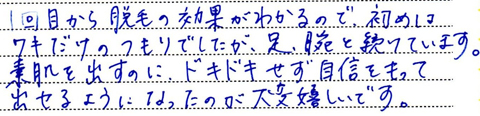 1回目から脱毛の効果がわかるので、初めは
ワキだけのつもりでしたが、足、腕と続けています。
素肌を出すのに、ドキドキせず自信をもって
出せるようになったのが大変嬉しいです。